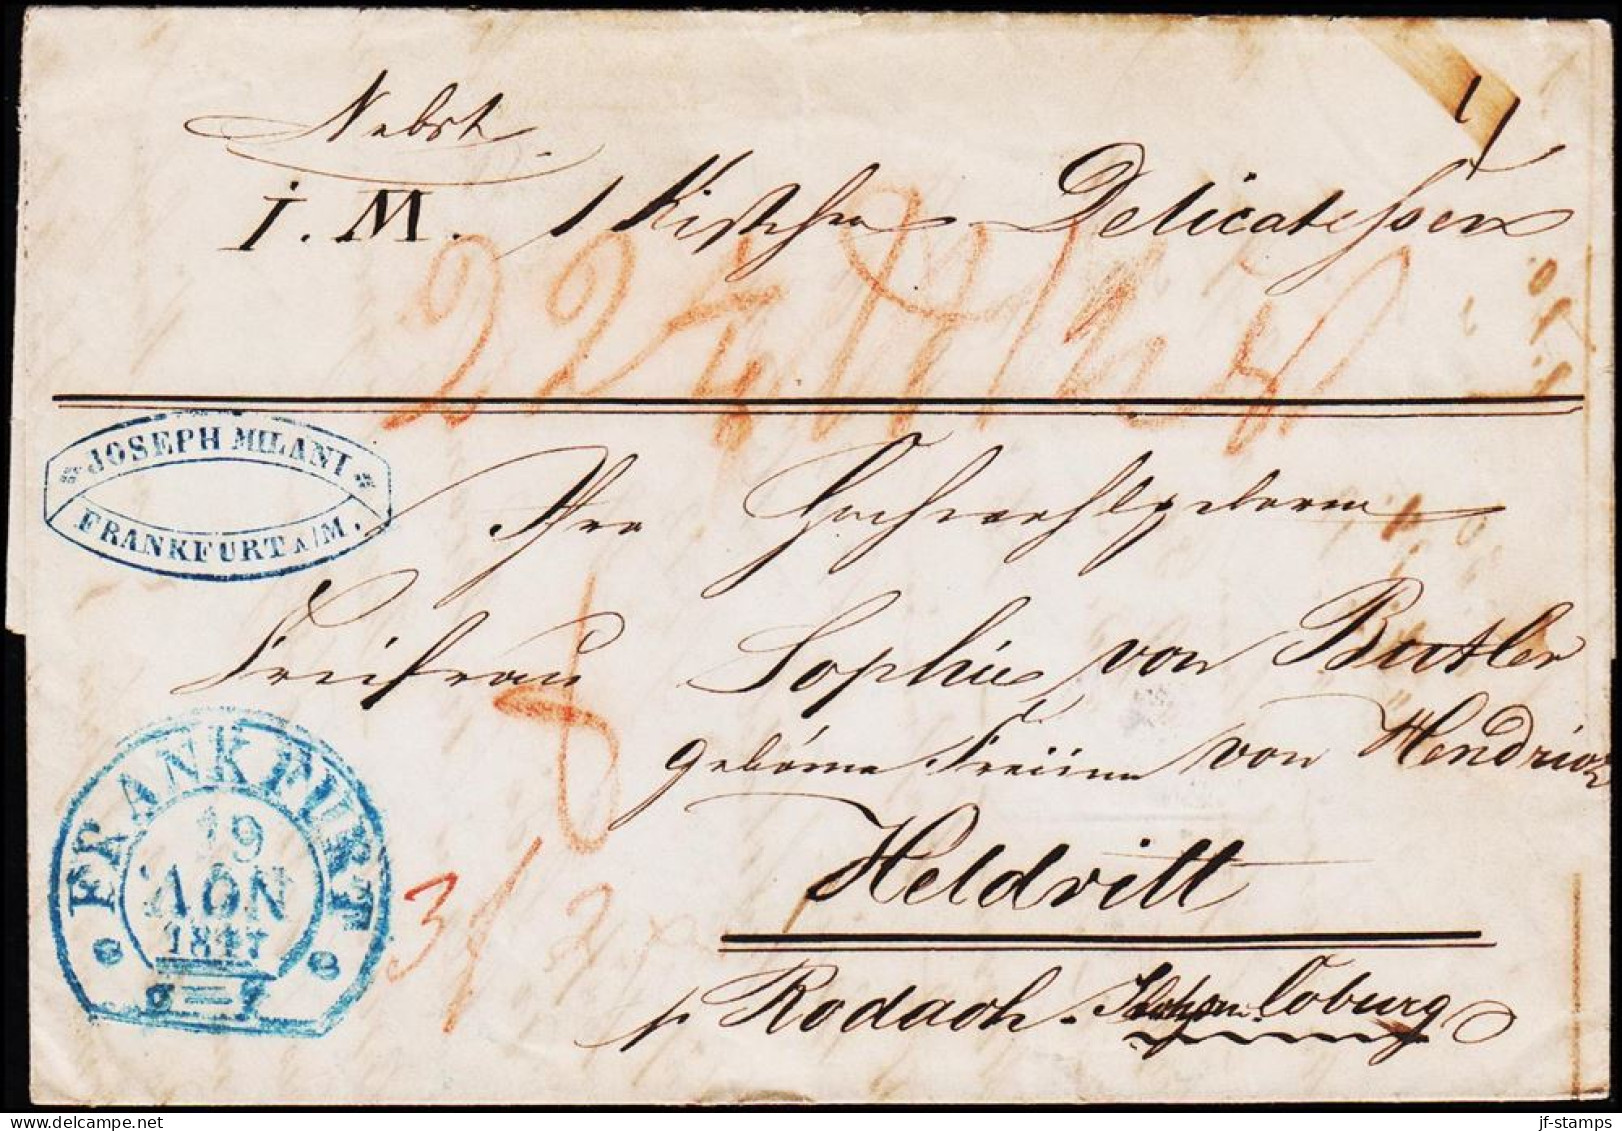 Nebst
J. M. 1 Kistchen Delicatessen
22
JOSEPH MILANI
FRANKFURT A/M.
Ihro Hochwohlgeboren
Freifrau Sophie von Buttler
geborne Freiinn von Hendrich
FRANKFURT
19
NOV
1847
3f 2
Heldritt
p. Rodach. Sachsen Coburg
jf-stamps